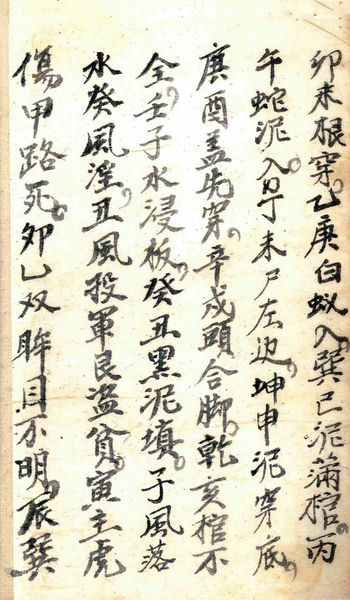 卯未根穿。乙庚白蚁入。巽巳泥滿棺。丙
午蛇泥入。丁未尸左边。坤申泥穿底。
庚酉盖先穿。辛戍頭合脚。乾亥棺不
全。壬子水浸板。癸丑黑泥填。子風落
水癸風淫。丑風投軍艮盗貧。寅主虎
傷甲路死。卯乙双眸目不明。辰巽